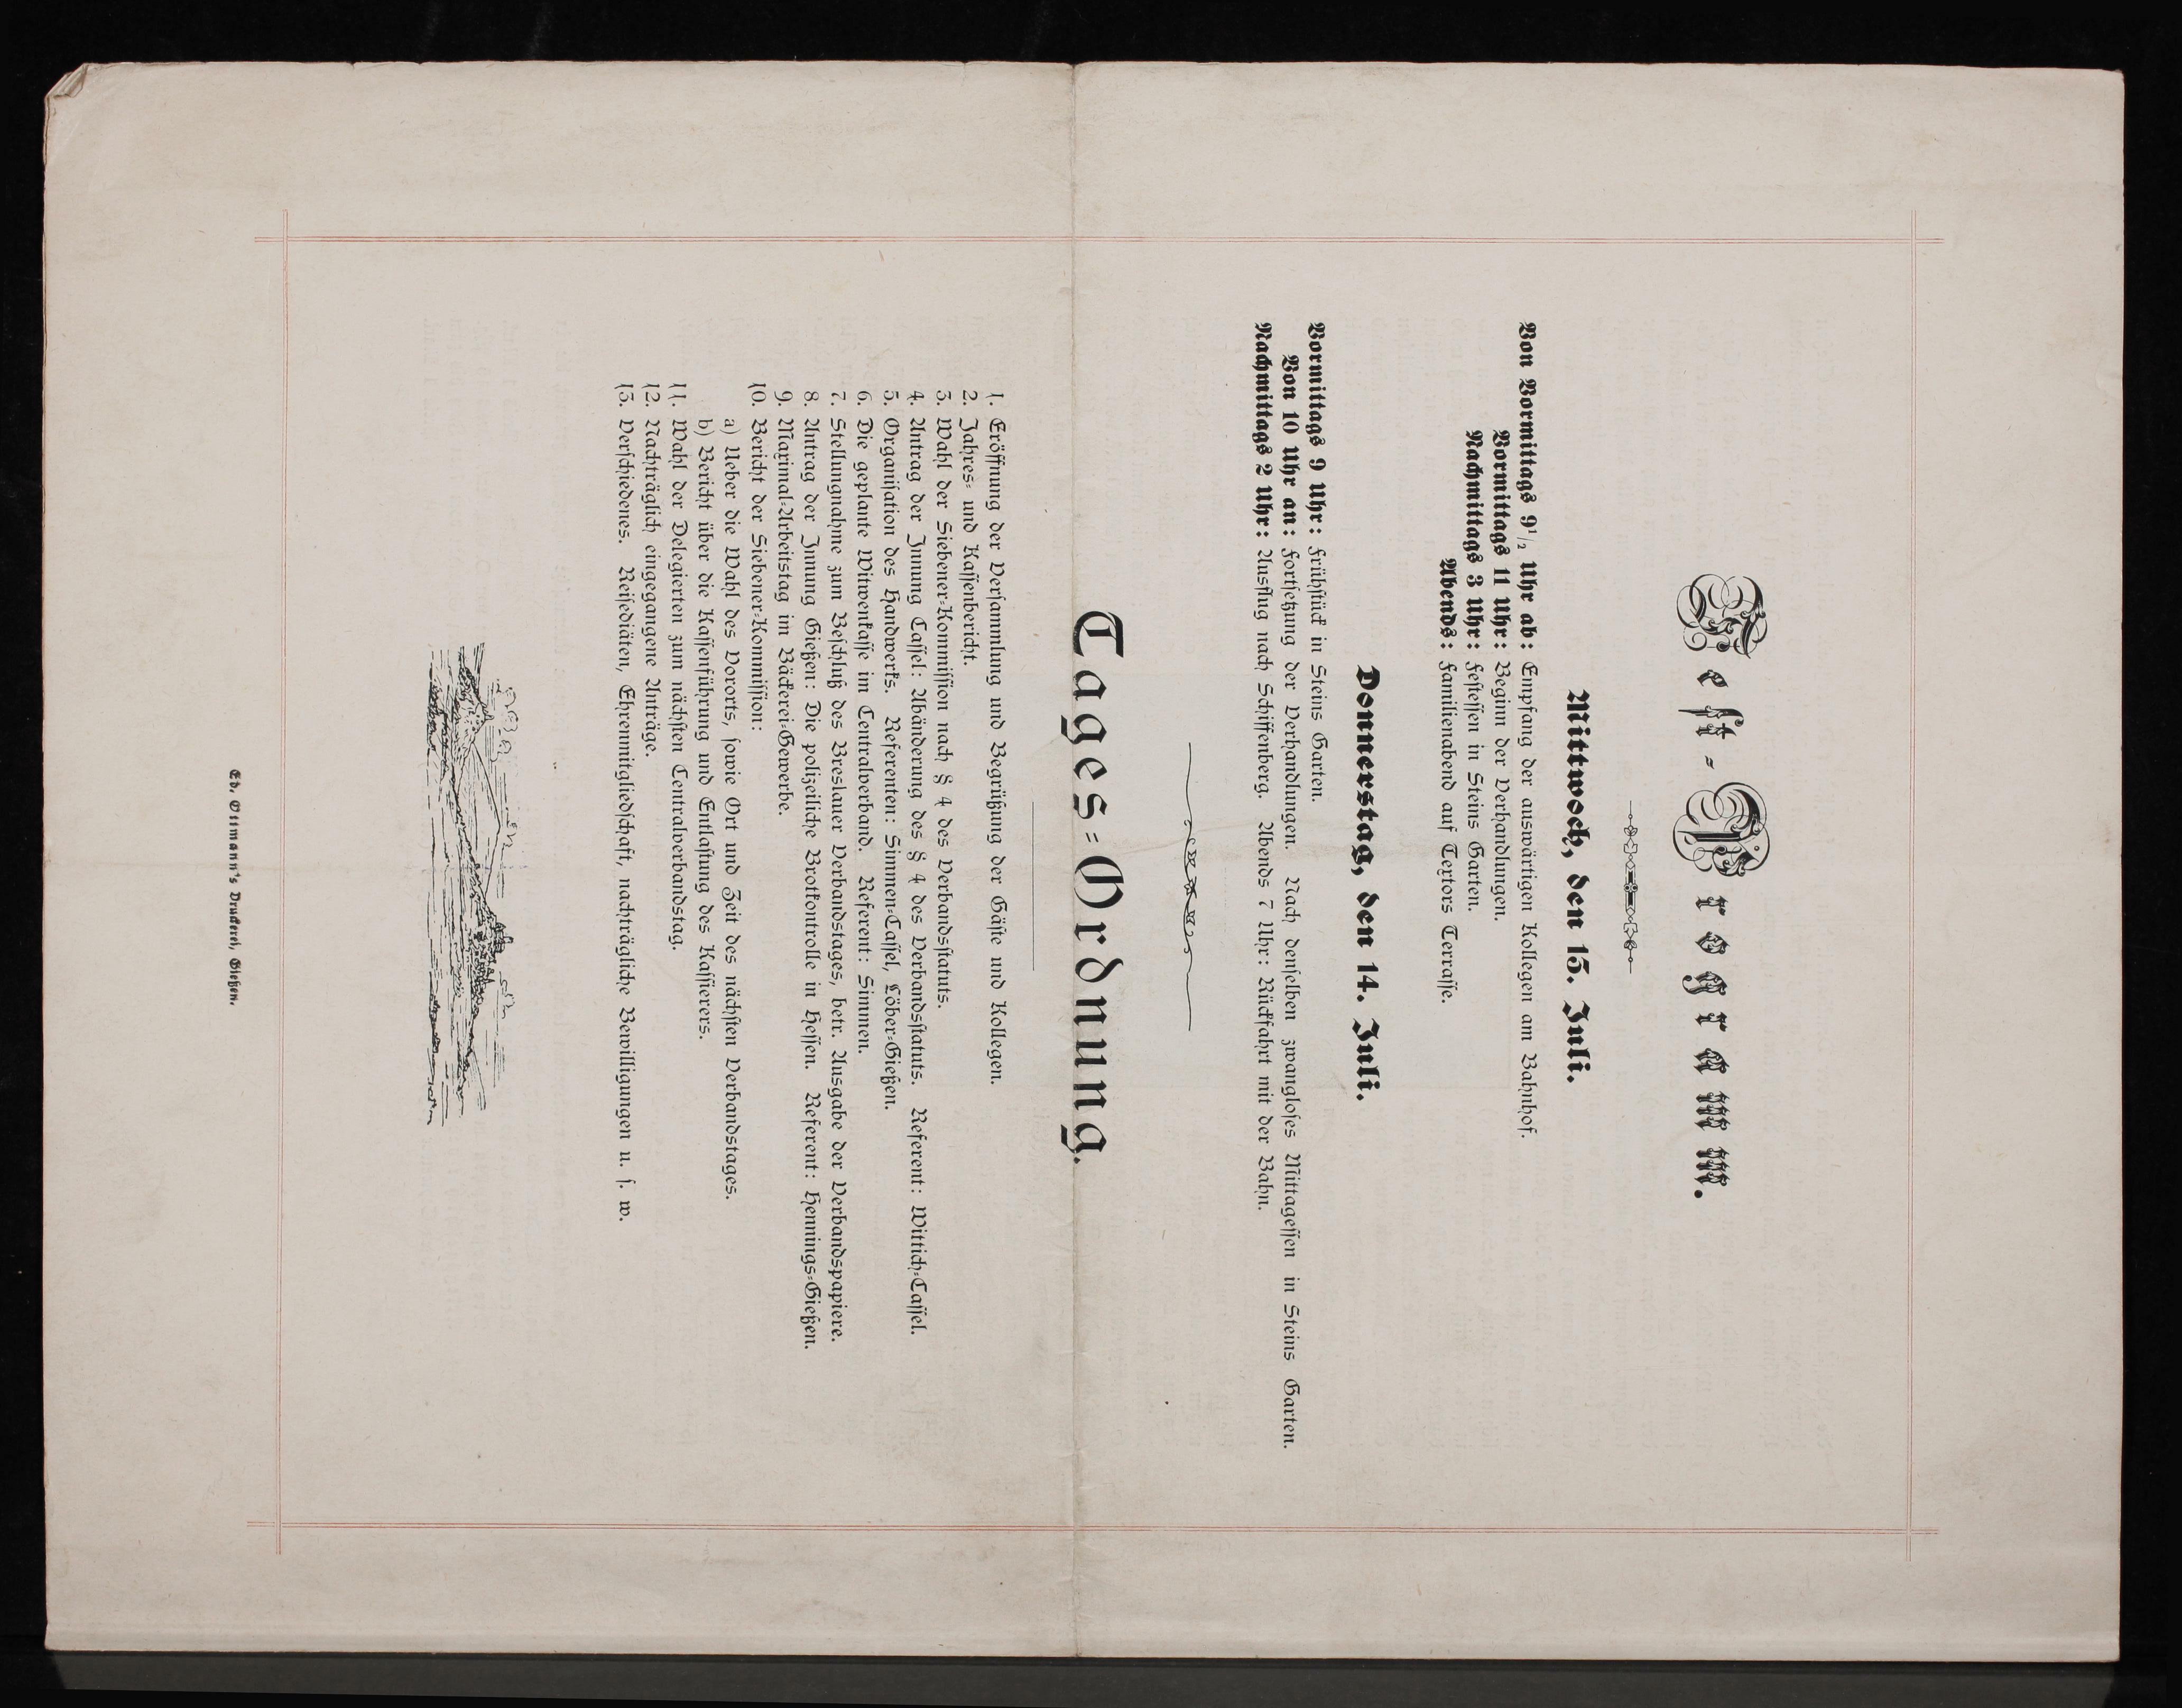 Fest-Programm.
Mittwoch, den 13. Juli.
Von Vormittags 9½ Uhr ab: Empfang der auswärtigen Kollegen am Bahnhof.
Vormittags 11 Uhr: Beginn der Verhandlungen.
Nachmittags 3 Uhr: Festessen in Steins Garten.
Abends: Familienabend auf Textors Terrasse.
Donnerstag, den 14. Juli.
Vormittags 9 Uhr: Frühstück in Steins Garten.
Von 10 Uhr an: Fortsetzung der Verhandlungen. Nach denselben zwangloses Mittagessen in Steins Garten.
Nachmittags 2 Uhr: Ausflug nach Schiffenberg. Abends 7 Uhr: Rückfahrt mit der Bahn.
Tages-Ordnung.
1. Eröffnung der Versammlung und Begrüßung der Gäste und Kollegen.
2. Jahres- und Kassenbericht.
3. Wahl der Siebener-Kommission nach § 4 des Verbandsstatuts.
4. Antrag der Innung Cassel: Abänderung des § 4 des Verbandsstatuts. Referent: Wittich-Cassel.
5. Organisation des Handwerks. Referenten: Simmen-Cassel, Löber-Gießen.
6. Die geplante Witwenkasse im Centralverband. Referent: Simmen.
7. Stellungnahme zum Beschluß des Breslauer Verbandstages, betr. Ausgabe der Verbandspapiere.
8. Antrag der Innung Gießen: Die polizeiliche Brotkontrolle in Hessen. Referent: Hennings-Gießen.
9. Maximal-Arbeitstag im Bäckerei-Gewerbe.
10. Bericht der Siebener-Kommission:
a) Ueber die Wahl des Vororts, sowie Ort und Zeit des nächsten Verbandstages.
b) Bericht über die Kassenführung und Entlastung des Kassierers.
11. Wahl der Delegierten zum nächsten Centralverbandstag.
12. Nachträglich eingegangene Anträge.
13. Verschiedenes. Reisediäten, Ehrenmitgliedschaft, nachträgliche Bewilligungen u. s. w.
Ed. Ottmann's Druckerei, Gießen.